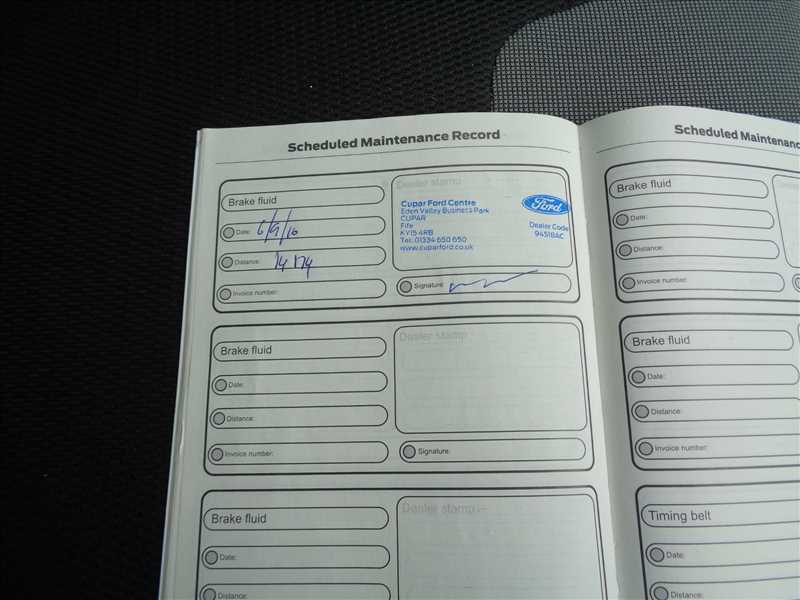 Scheduled Maintenance Record
Brake fluid
Date: 6/9/16
Distance: 14174
Invoice number:
Dealer stamp
Cupar Ford Centre
Eden Valley Business Park
CUPAR
Fife
KY15 4RB
Tel. 01334 650 650
www.cuparford.co.uk
Ford
Dealer Code
94518AC
Signature:
Brake fluid
Date:
Distance:
Invoice number:
Dealer stamp
Signature:
Brake fluid
Date:
Distance:
Dealer stamp
Scheduled Maintenanc
Brake fluid
Date:
Distance:
Invoice number:
Brake fluid
Date:
Distance:
Invoice number:
Timing belt
Date:
Distance: